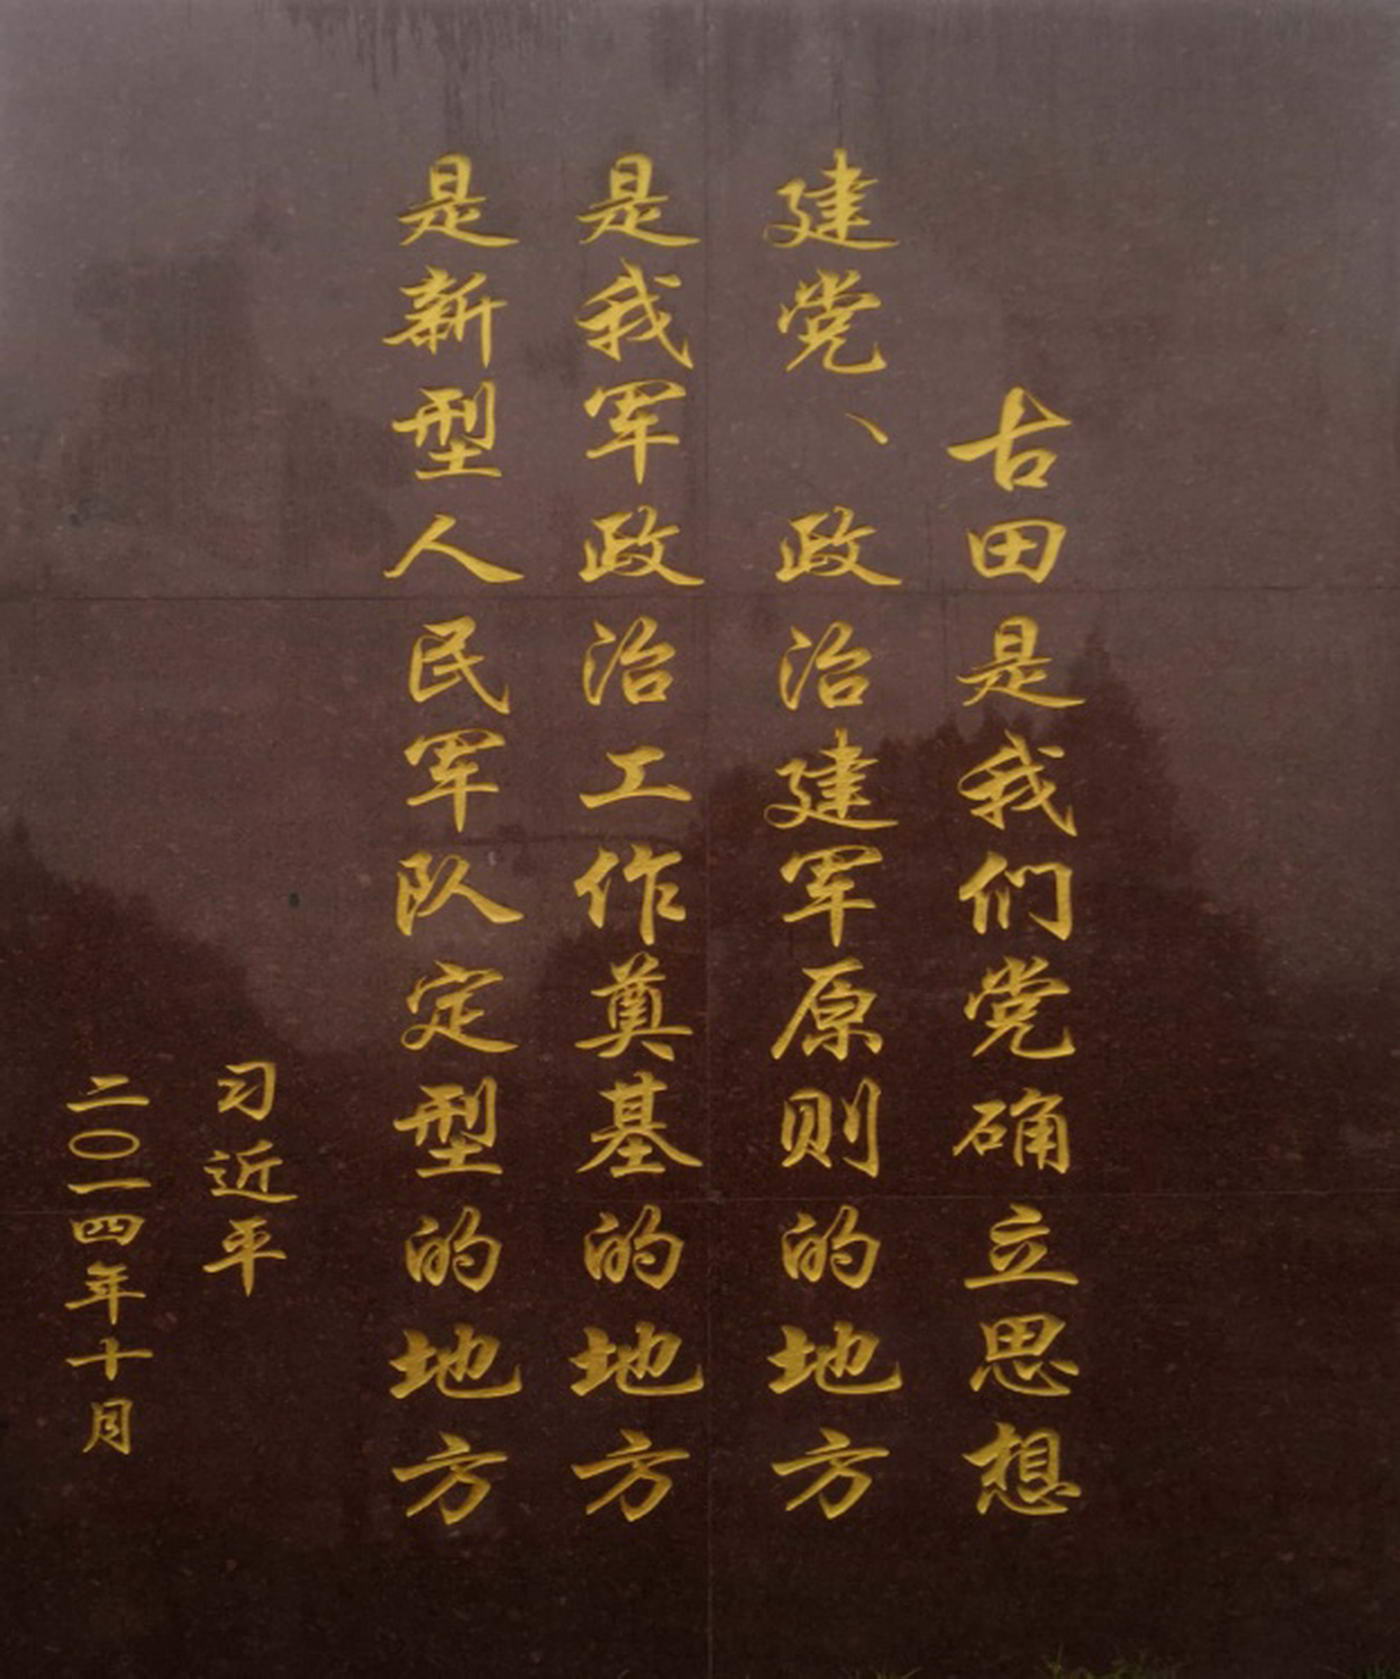 古田是我们党确立思想
建党、政治建军原则的地方
是我军政治工作奠基的地方
是新型人民军队定型的地方
习近平
二〇一四年十月